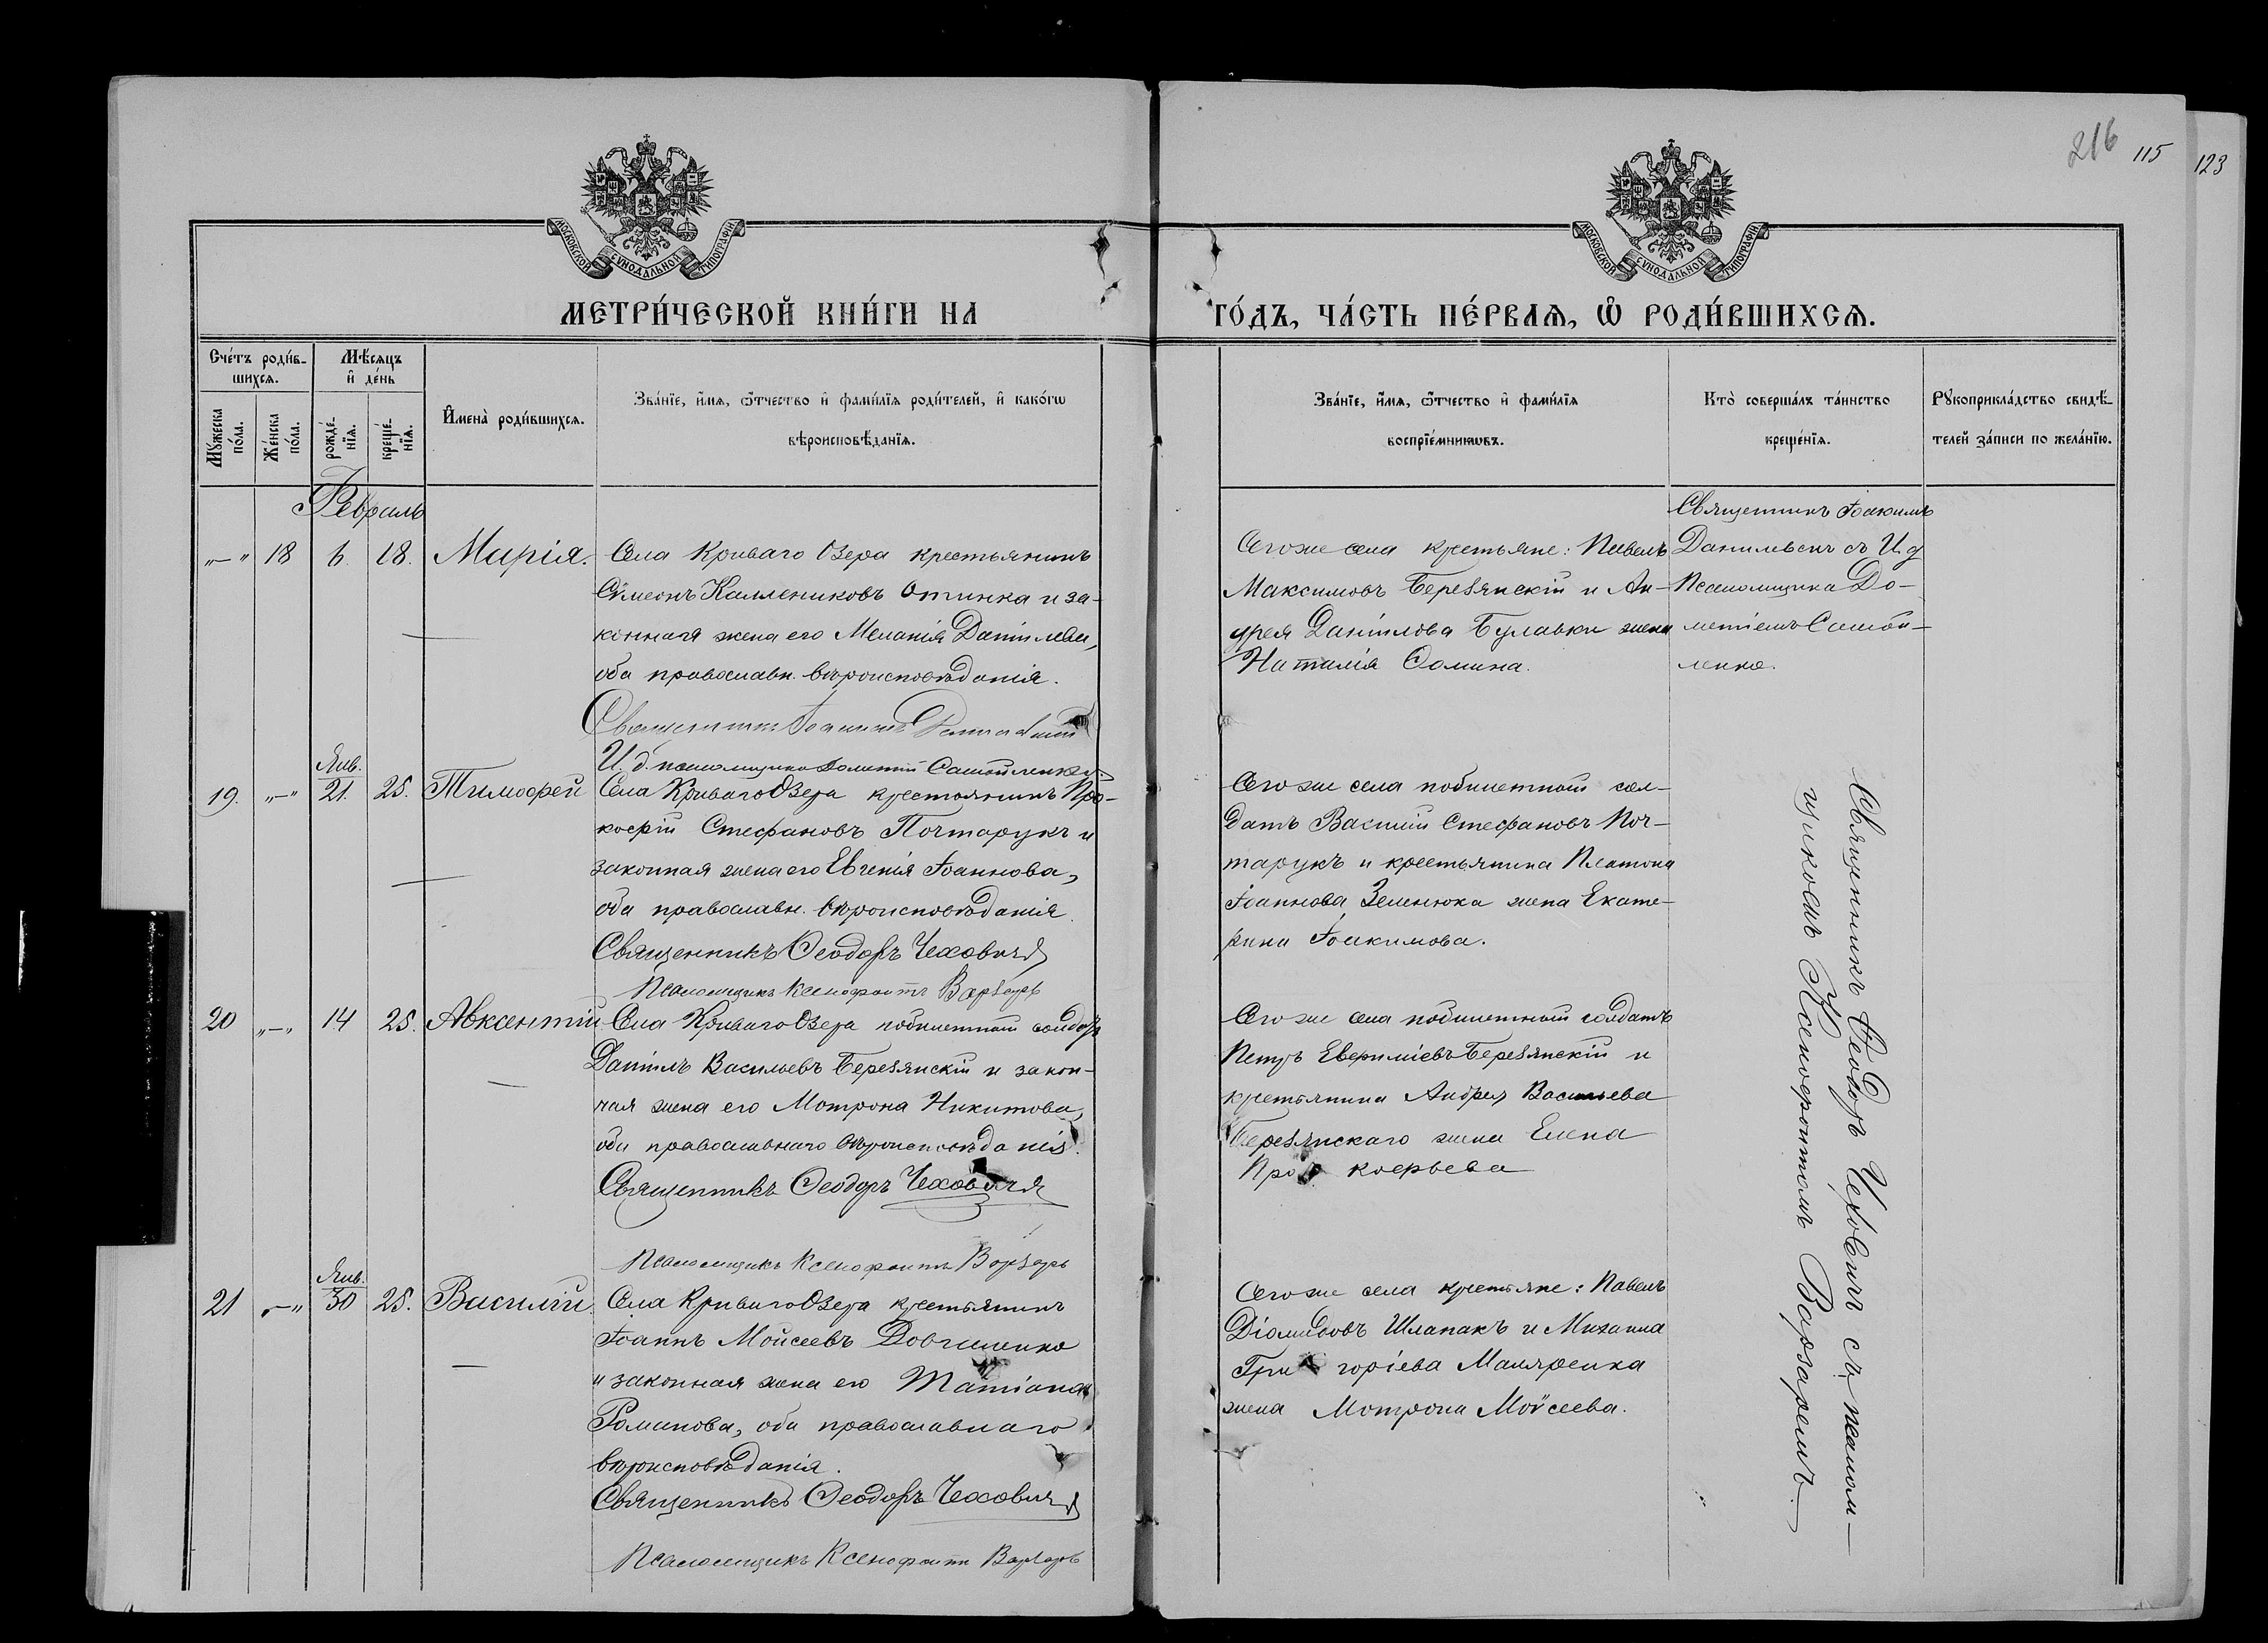 216 115 123
МОСКОВСКОЙ СѴНОДАЛЬНОЙ ТИПОГРАФІИ
МОСКОВСКОЙ СѴНОДАЛЬНОЙ ТИПОГРАФІИ
МЕТРИ́ЧЕСКОЙ КНИ́ГИ НА
ГО́ДЪ, ЧА́СТЬ ПЕ́РВАѦ, Ѡ҆ РОДИ́ВШИХСѦ.
Сче́тъ роди́в-
шихсѧ.
Мꙋ́жеска
по́ла.
Же́нска
по́ла.
Мѣ́сѧцъ
и҆ де́нь
рожде́-
нїѧ.
креще́-
нїѧ.
И҆мена̀ роди́вшихсѧ.
Зва́нїе, и҆́мѧ, ѻ҆́тчество и҆ фами́лїѧ роди́телей, и҆ како́гѡ
вѣроисповѣ́данїѧ.
Зва́нїе, и҆́мѧ, ѻ҆́тчество и҆ фами́лїѧ
воспрїе́мникѡвъ.
Кто̀ соверша́лъ та́инство
креще́нїѧ.
Рꙋкоприкла́дство свидѣ́-
телей за́писи по жела́нїю.
Февраль
„—„ 18 6. 18. Марія.
Села Криваго Озера крестьянинъ
Сѵмеонъ Каллениковъ Отинка и за-
конная жена его Меланія Даніилова,
оба православн. вѣроисповѣданія.
Священникъ Іоакимъ Данилевскій
И. д. псаломщика Дометій Самойленко.
Сего же села крестьяне: Павелъ
Максимовъ Березянскій и Ан-
дрея Даніилова Булавки жена
Наталія Фомина.
Священникъ Іоакимъ
Данилевскій съ И. д
Псаломщика До-
метіемъ Самой-
ленко.
19. „—„ Янв. 21. 25. Тимоѳей
Села Криваго Озера крестьянинъ Про-
кофій Стефановъ Почтарукъ и
законная жена его Евгенія Іоаннова,
оба православн. вѣроисповѣданія.
Священникъ Ѳеодоръ Чеховичъ
Псаломщикъ Ксенофонтъ Варзарь
Сего же села побилетный сол-
датъ Василій Стефановъ Поч-
тарукъ и крестьянина Платона
Іоаннова Зеленюка жена Екате-
рина Іоакимова.
20 „—„ 14 25. Авксентій
Села Криваго Озера побилетный солдатъ
Даніилъ Васильевъ Березянскій и закон-
ная жена его Мотрона Никитова,
оба православнаго вѣроисповѣданія.
Священникъ Ѳеодоръ Чеховичъ
Псаломщикъ Ксенофонтъ Варзарь
Сего же села побилетный солдатъ
Петръ Евфиміевъ Березянскій и
крестьянина Андрея Васильева
Березянскаго жена Елена
Про кофьева
21 „—„ Янв. 30 25. Василій.
Села Криваго Озера крестьянинъ
Іоаннъ Моисеевъ Довгиленко
и законная жена его Татіана
Романова, оба православнаго
вѣроисповѣданія.
Священникъ Ѳеодоръ Чеховичъ
Псаломщикъ Ксенофонтъ Варзарь
Сего же села крестьяне: Павелъ
Діомидовъ Шлапакъ и Михаила
Гри горіева Маляренка
жена Мотрона Моѵсеева.
Священникъ Ѳеодоръ Чеховичъ съ псалом-
щикомъ Ксенофонтомъ Варзаремъ.